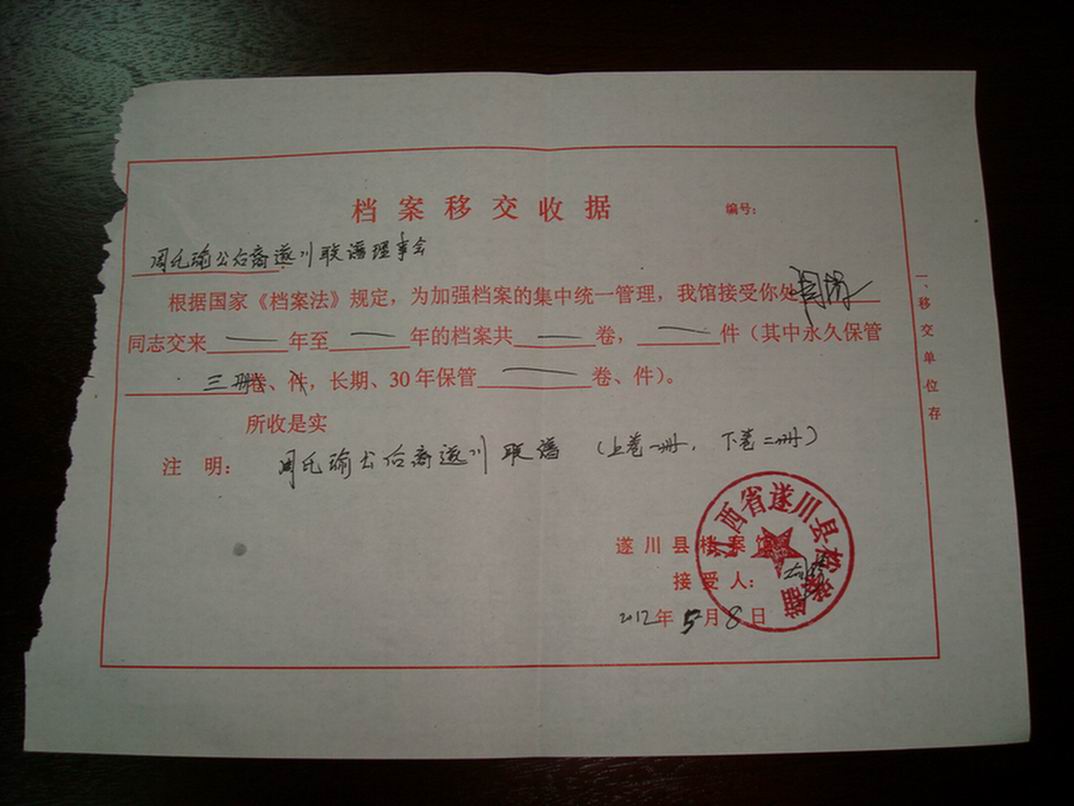 档案移交收据
编号：
周氏瑜公后裔遂川联谱理事会
根据国家《档案法》规定，为加强档案的集中统一管理，我馆接受你处
同志交来 一 年至 一 年的档案共 一 卷， 一 件（其中永久保管
三册卷、件，长期、30年保管 一 卷、件）。
所收是实
注 明： 周氏瑜公后裔遂川联谱（上卷一册，下卷二册）
遂川县档案馆
接受人：
2012年5月8日
江西省遂川县档案馆
一、移交单位存